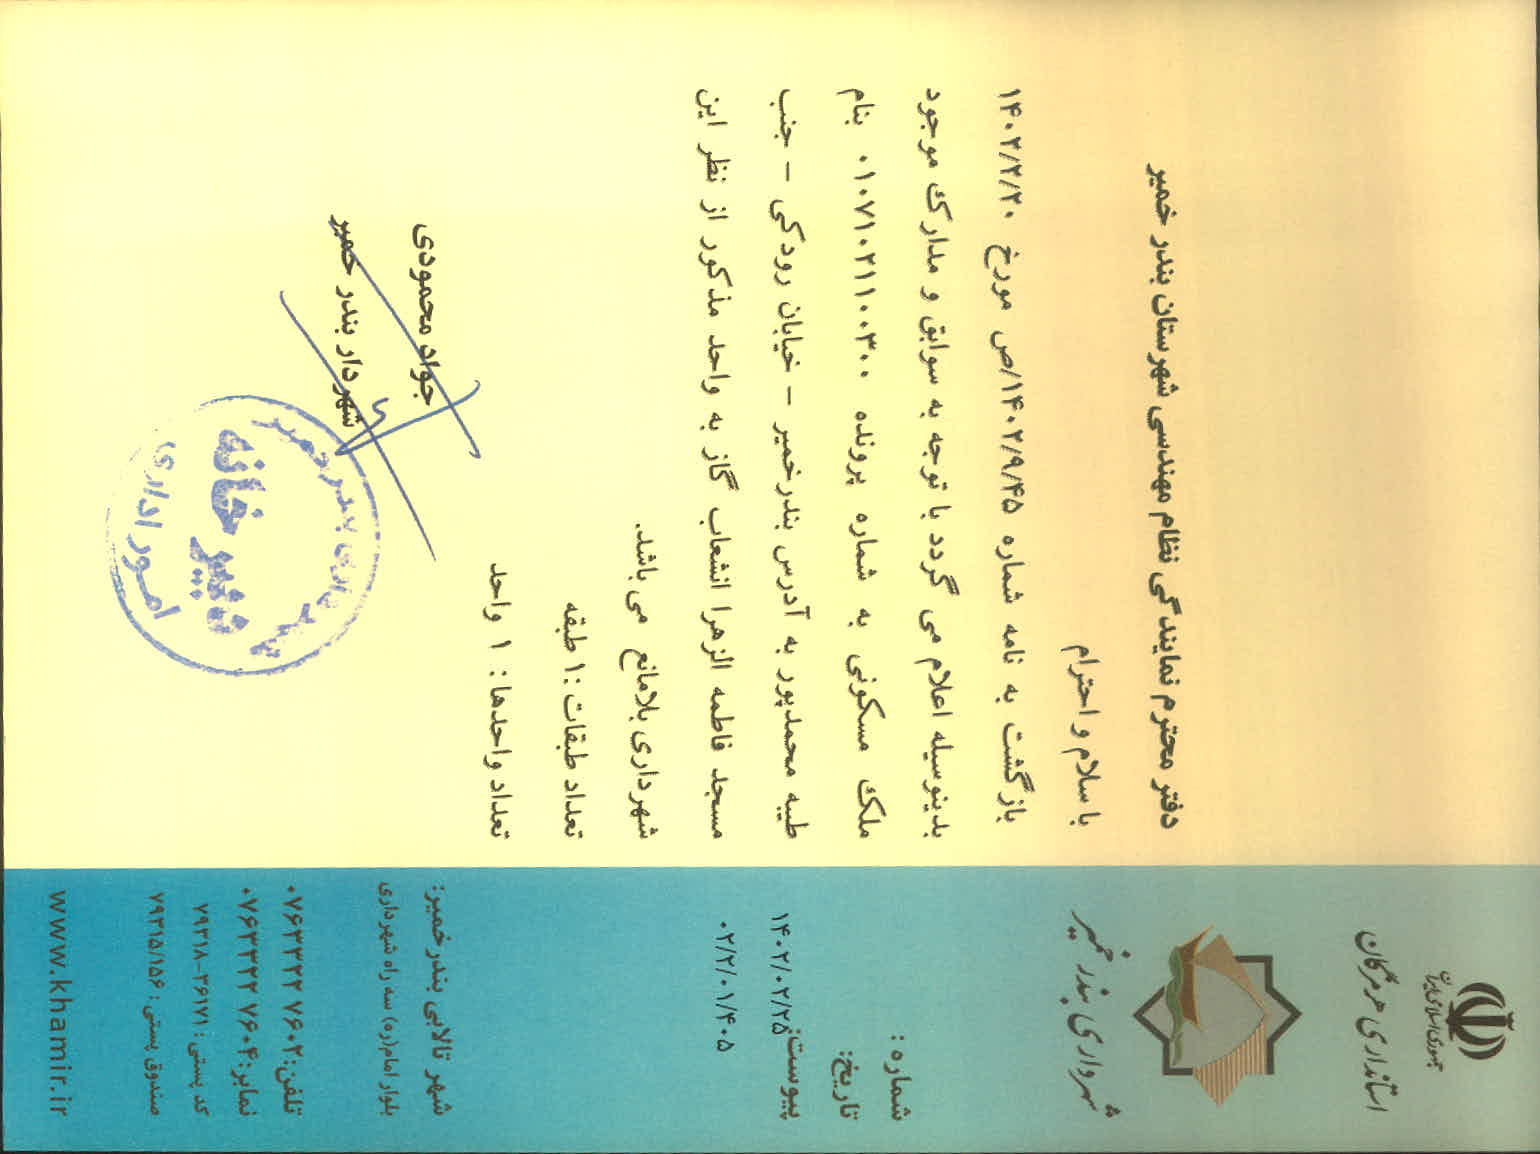 جمهوری اسلامی ایران
استانداری هرمزگان
شهرداری بندر خمیر
شماره :
تاریخ:
پیوست:
۱۴۰۲/۰۲/۲۵
۰۲/۲/۰۱/۴۰۵
دفتر محترم نمایندگی نظام مهندسی شهرستان بندر خمیر
با سلام و احترام
بازگشت به نامه شماره ۱۴۰۲/۹/۴۵/ص مورخ ۱۴۰۲/۲/۲۰
بدینوسیله اعلام می گردد با توجه به سوابق و مدارک موجود
ملک مسکونی به شماره پرونده ۰۱۰۷۱۰۲۱۱۰۰۳۰۰ بنام
طیبه محمدپور به آدرس بندرخمیر – خیابان رودکی – جنب
مسجد فاطمه الزهرا انشعاب گاز به واحد مذکور از نظر این
شهرداری بلامانع می باشد.
تعداد طبقات :۱ طبقه
تعداد واحدها: ۱ واحد
جواد محمودی
شهردار بندر خمیر
شهرداری بندر خمیر
دبیر خانه
امور اداری
شهر تالابی بندر خمیر:
بلوار امام(ره) سه راه شهرداری
تلفن: ۰۷۶۳۳۲۲ ۷۶۰۲
نمابر: ۰۷۶۳۳۲۲ ۷۶۰۴
کد پستی : ۳۶۱۷۱-۷۹۳۱۸
صندوق پستی : ۷۹۳۱۵/۱۵۶
www.khamir.ir